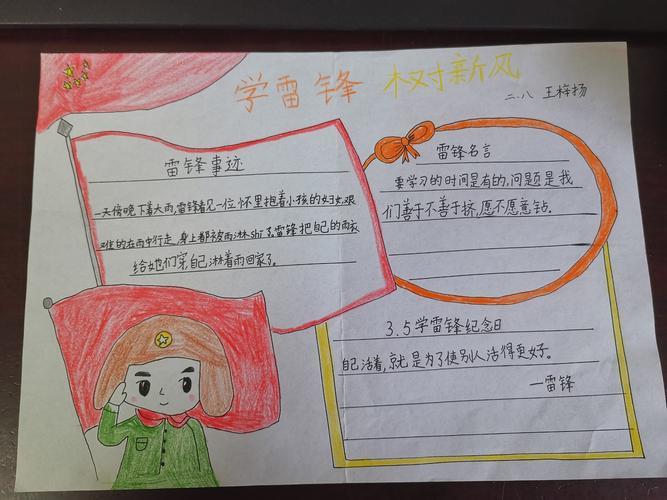 学雷锋 树新风
二.八 王梓扬
雷锋事迹
一天傍晚下着大雨,雷锋看见一位怀里抱着小孩的妇女艰
难的在雨中行走,身上都被雨淋shi了雷锋把自己的雨衣
给她们穿自己淋着雨回家了。
雷锋名言
要学习的时间是有的,问题是我
们善于不善于挤,愿不愿意钻。
3.5学雷锋纪念日
自己活着,就是为了使别人活得更好。
一雷锋